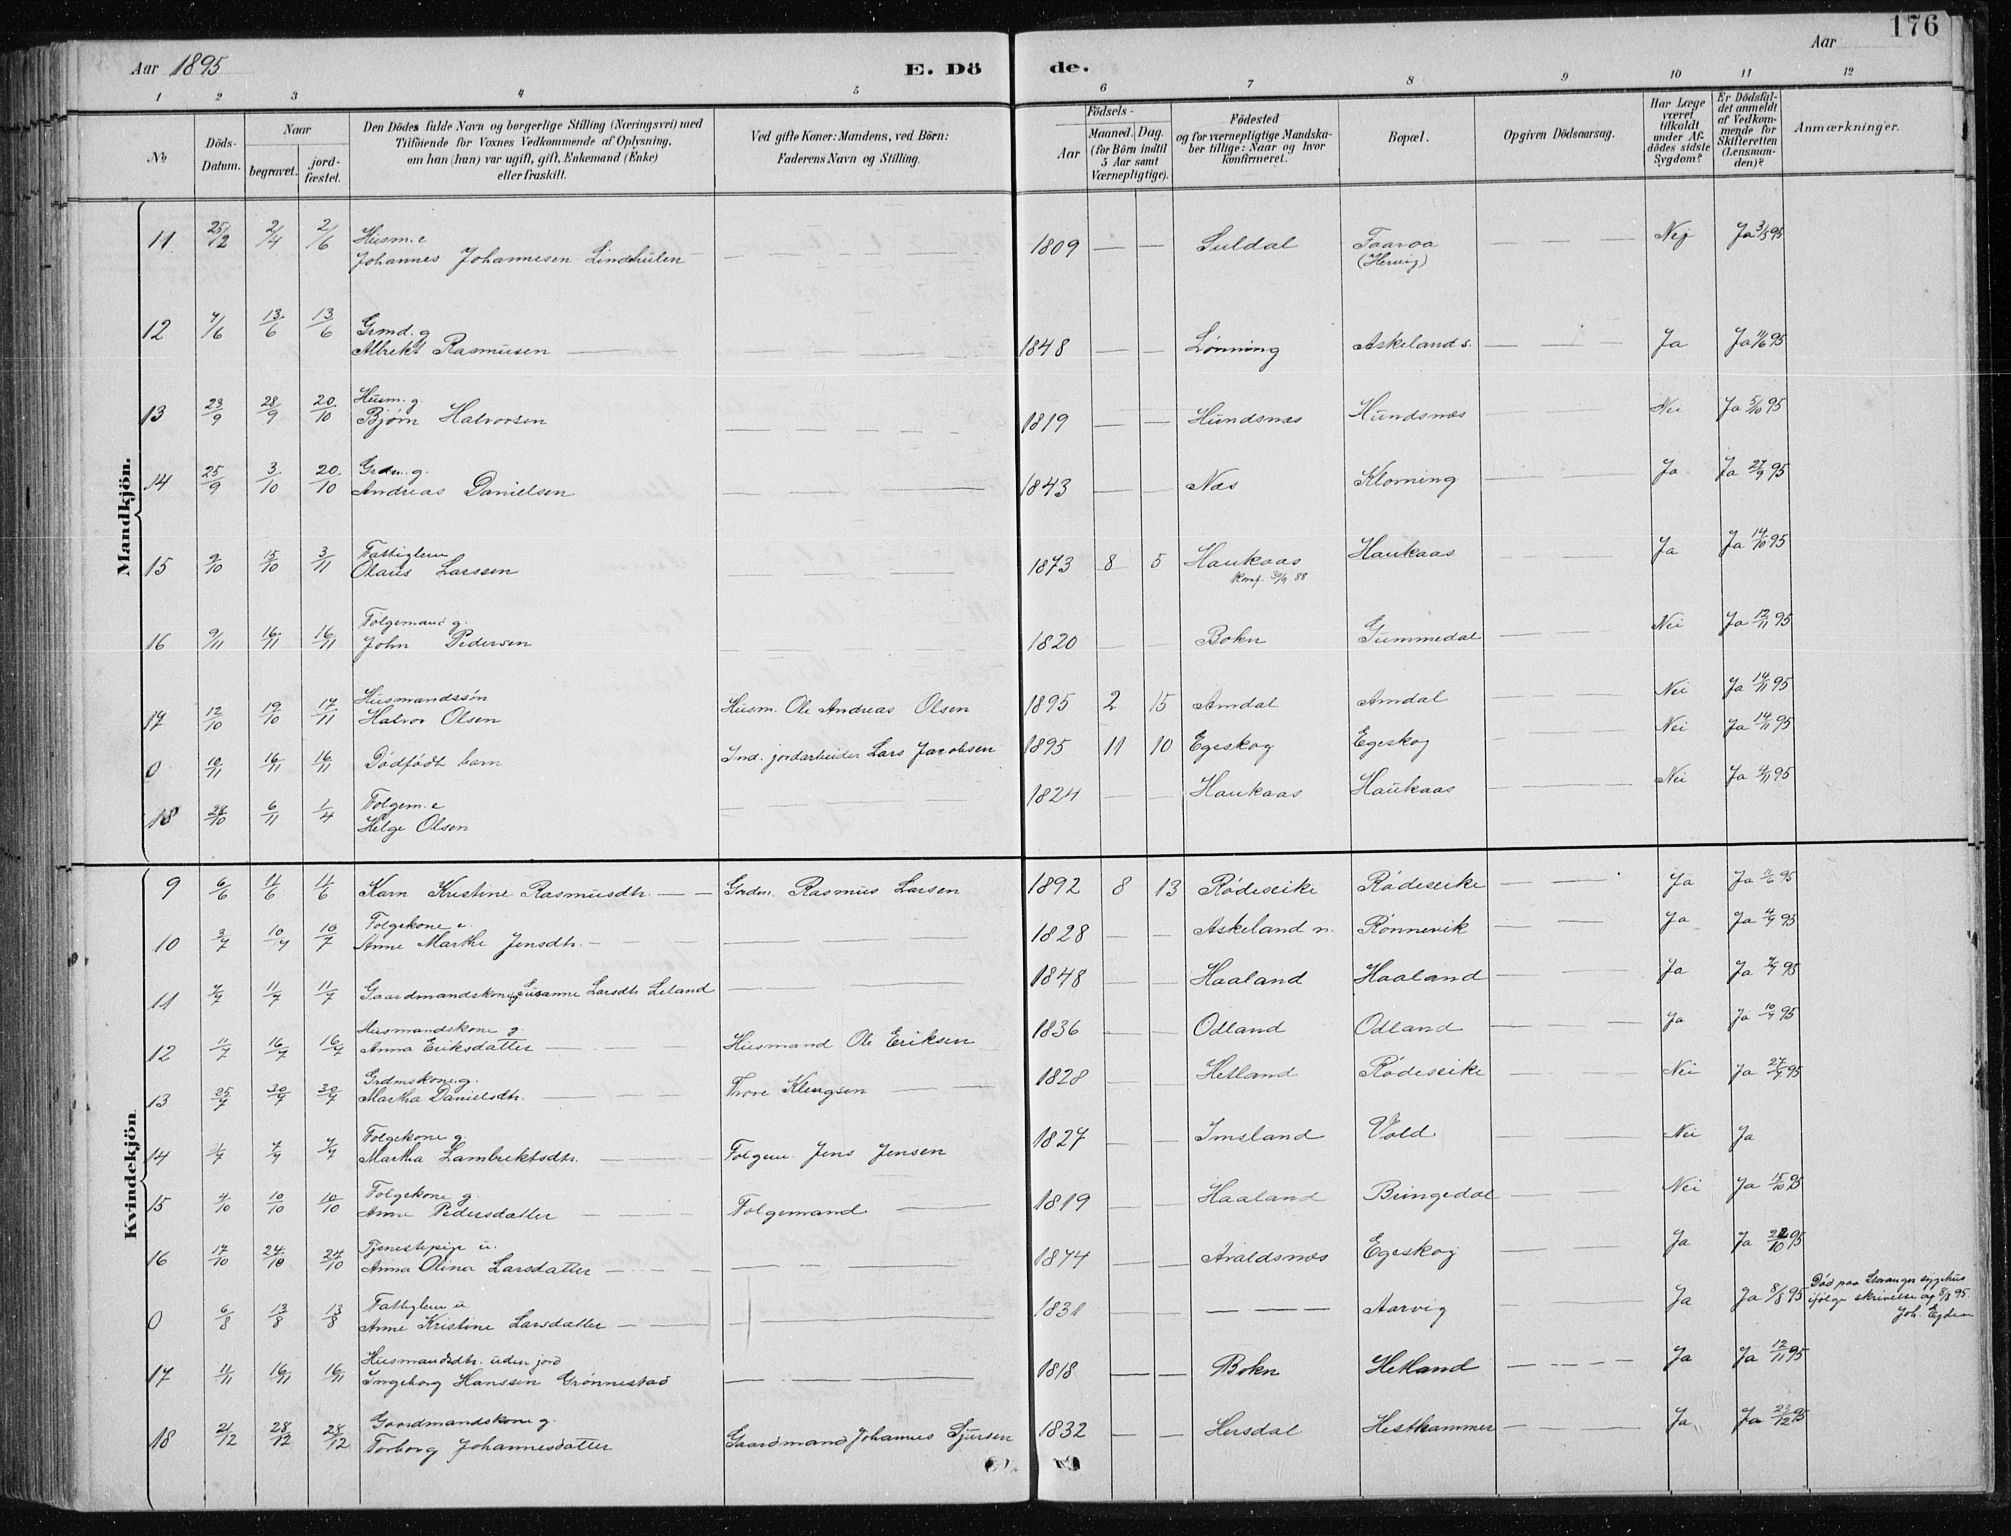 176
Aar 1895 E. Dö de. Aar
1 2 3 4 5 6 7 8 9 10 11 12
No Döds-Datum. Naar begravet. jordfæstet. Den Dödes fulde Navn og borgerlige Stilling (Næringsvei) med Tilföiende for Voxnes Vedkommende af Oplysning, om han (hun) var ugift, gift, Enkemand (Enke) eller fraskilt. Ved gifte Koner: Mandens, ved Börn: Faderens Navn og Stilling. Födsels- Aar Maaned. Dag. (for Börn indtil 5 Aar samt Værnepligtige). Födested og for værnepligtige Mandskaber tillige: Naar og hvor konfirmeret. Bopæl. Opgiven Dödsaarsag. Har Læge været tilkaldt under Afdödes sidste Sygdom? Er Dödsfaldet anmeldt af Vedkommende for Skifteretten (Lensmanden)? Anmærkninger.
Mandkjön.
11 25/12 2/4 2/6 Husm. e Johannes Johannesen Lindhulen — 1809 — — Suldal Faaroa (Hervig) — Nej Ja 3/5 95
12 4/6 13/6 13/6 Grmd. g Albrekt Rasmusen — 1848 — — Lønning Askeland s. — Ja Ja 11/6 95
13 23/9 28/9 20/10 Husm. g. Bjørn Halvorsen — 1819 — — Hundsnæs Hundsnæs — Nei Ja 5/10 95
14 25/9 3/10 20/10 Grdm. g. Andreas Danielsen — 1843 — — Næs Klorning — Ja Ja 27/9 95
15 9/10 15/10 3/11 Fattiglem Olaus Larssen — 1873 8 5 Haukaas Konf. 30/9 88 Haukaas — Ja Ja 14/10 95
16 9/11 16/11 16/11 Følgemand g. John Pedersen — 1820 — — Bokn Gummedal — Nei Ja 12/11 95
17 12/10 19/10 17/11 Husmandssøn Halvor Olsen Husm. Ole Andreas Olsen 1895 2 15 Amdal Amdal — Nei Ja 14/11 95
0 10/11 16/11 16/11 Dødfødt barn Ind. jordarbeider Lars Jacobsen 1895 11 10 Egeskog Egeskog — Nei Ja 14/11 95
18 28/10 6/11 1/4 Følgem. e Helge Olsen — 1824 — — Haukaas Haukaas Nei Ja 4/11 95
Kvindekjön
9 6/6 11/6 11/6 Karn Kristine Rasmusdtr. — Grdm. Rasmus Larsen 1892 8 13 Rødeseike Rødeseike — Ja Ja 11/6 95
10 3/7 10/7 10/7 Følgekone e Anne Marthe Jensdtr. — 1828 — — Askeland n. Rønnevik — Ja Ja 4/7 95
11 4/7 11/7 11/7 Gaardmandskone g Susanne Larsdtr Leland — 1848 — — Haaland Haaland — Ja Ja 7/7 95
12 11/7 16/7 16/7 Husmandskone g Anna Eriksdatter — Husmand Ole Eriksen 1836 — — Odland Odland — Ja Ja 10/7 95
13 25/7 30/7 30/7 Grdmskone g. Martha Danielsdtr. — Tore Klengsen — 1828 — — Hetland Rødeseike — Nei Ja 27/7 95
14 1/7 7/7 7/7 Følgekone g Martha Lambrektsdtr. — Følgem. Jens Jensen 1827 — — Imsland Vold — Nei Ja
15 4/10 10/10 10/10 Følgekone g. Anne Pedersdatter — Følgemand — 1819 — — Haaland Bringedal — Nei Ja 15/10 95
16 17/10 24/10 24/10 Tjenestepige u. Anna Olina Larsdatter — 1874 — — Avaldsnæs Egeskog Ja Ja 22/10 95
0 6/8 13/8 13/8 Fattiglem u. Anne Kristine Larsdatter — 1831 — Aarvig — Ja Ja 8/8 95 Død paa Stavanger sygehus ifølge skrivelse af 8/8 95
17 11/11 16/11 16/11 Husmandsdtr. uden jord Ingeborg Hanssen Grønnestad — 1818 — Bokn Hetland — Ja Ja 12/11 95
18 21/12 28/12 28/12 Gaardmandskone g. Torborg Johannesdatter Gaardmand Johannes Sjursen 1832 — — Hersdal Hesthammer — Ja Ja 23/12 95